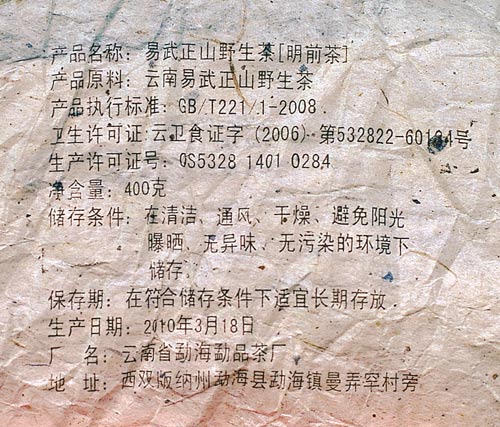 产品名称：易武正山野生茶[明前茶]
产品原料：云南易武正山野生茶
产品执行标准：GB/T221/1-2008．
卫生许可证：云卫食证字（2006）第532822-60134号
生产许可证号：QS5328 1401 0284
净含量：400克
储存条件：在清洁、通风、干燥、避免阳光
曝晒、无异味、无污染的环境下
储存．
保存期：在符合储存条件下适宜长期存放．
生产日期：2010年3月18日
厂 名：云南省勐海勐品茶厂
地 址：西双版纳州勐海县勐海镇曼弄罕村旁